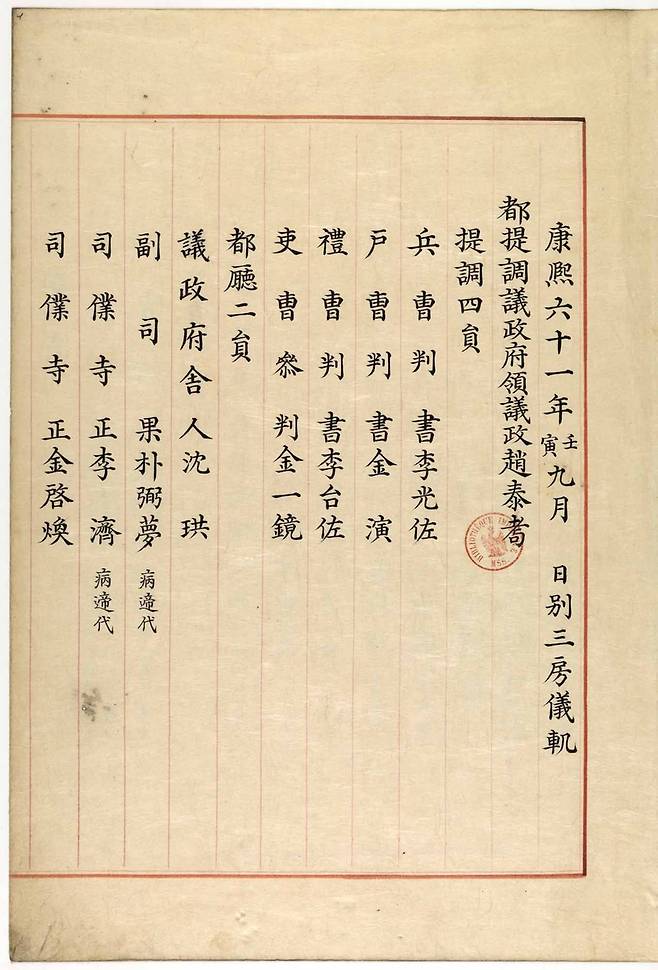 康熙六十一年壬寅九月 日別三房儀軌
都提調議政府領議政趙泰耉
提調四員
兵曹判書李光佐
戶曹判書金演
禮曹判書李台佐
吏曹叅判金一鏡
都廳二員
議政府舍人沈珙
副司果朴弼夢病遆代
司僕寺正李濟病遆代
司僕寺正金啓煥
BIBLIOTHÈQUE
MSS